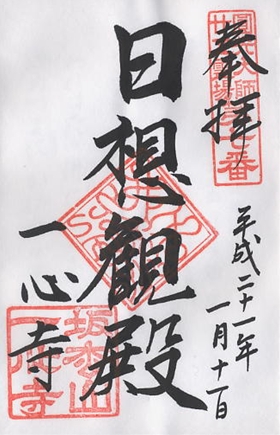 奉拝
平成二十一年
一月十一日
日想觀殿
一心寺
坂松山
一心寺